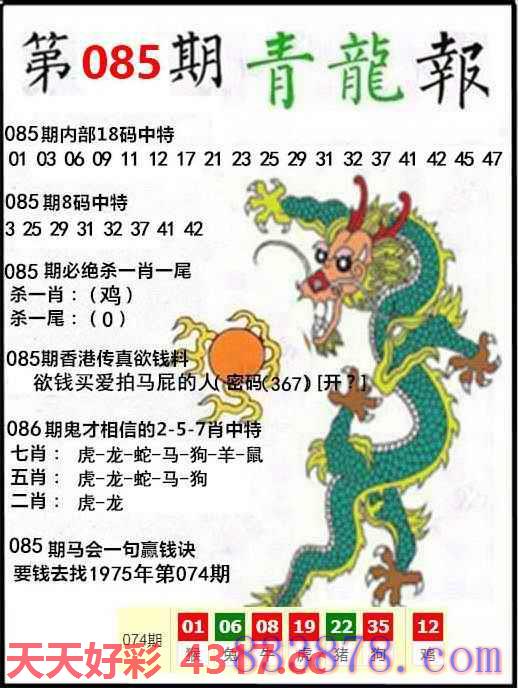 第085期 青龍報
085期内部18码中特
01 03 06 09 11 12 17 21 23 25 29 31 32 37 41 42 45 47
085期8码中特
3 25 29 31 32 37 41 42
085 期必绝杀一肖一尾
杀一肖：(鸡)
杀一尾：(0)
085期香港传真欲钱料
欲钱买爱拍马屁的人(密码(367)[开？]
086期鬼才相信的2-5-7肖中特
七肖： 虎-龙-蛇-马-狗-羊-鼠
五肖： 虎-龙-蛇-马-狗
二肖： 虎-龙
085 期马会一句赢钱诀
要钱去找1975年第074期
074期 01 06 08 19 22 35 12
猴 兔 牛 虎 猪 狗 鸡
天天好彩 4317.cc
832878.com